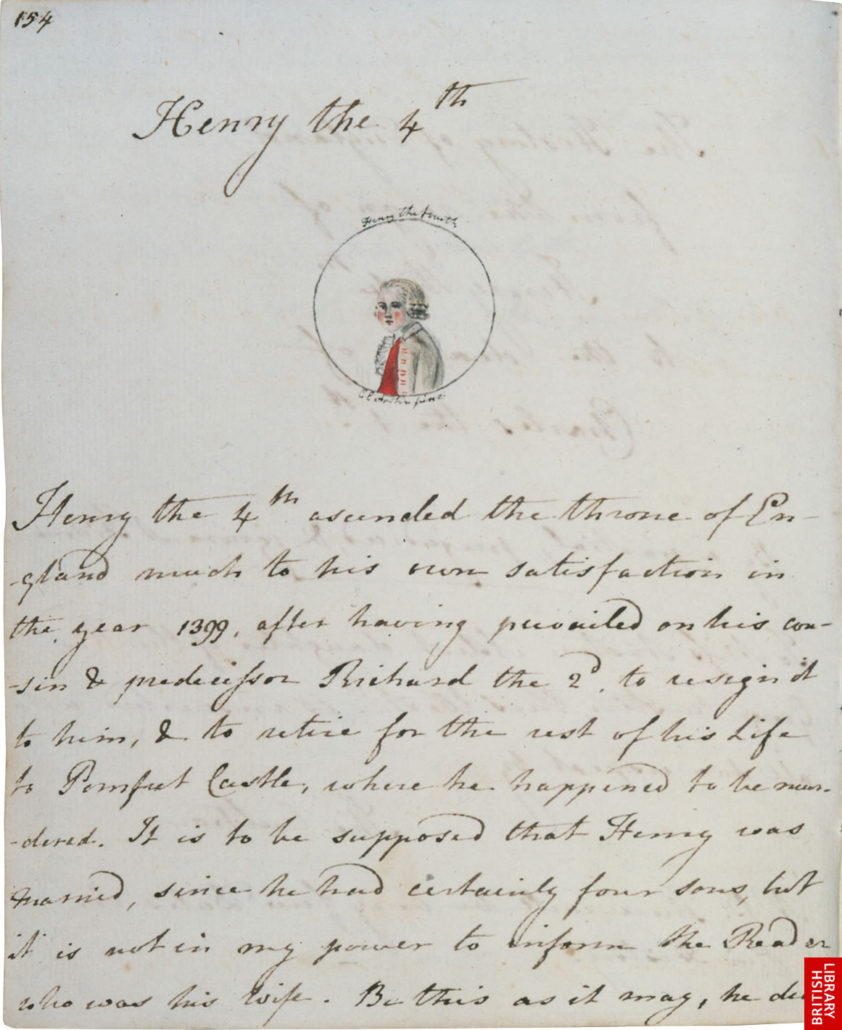 154
Henry the 4th
Henry the fourth
C E Austen pinx
Henry the 4th ascended the throne of En-
-gland much to his own satisfaction in
the year 1399, after having prevailed on his cou-
-sin & predecessor Richard the 2d, to resign it
to him, & to retire for the rest of his Life
to Pomfret Castle, where he happened to be mur-
-dered. It is to be supposed that Henry was
married, since he had certainly four sons, but
it is not in my power to inform the Reader
who was his Wife. Be this as it may, he
BRITISH
LIBRARY